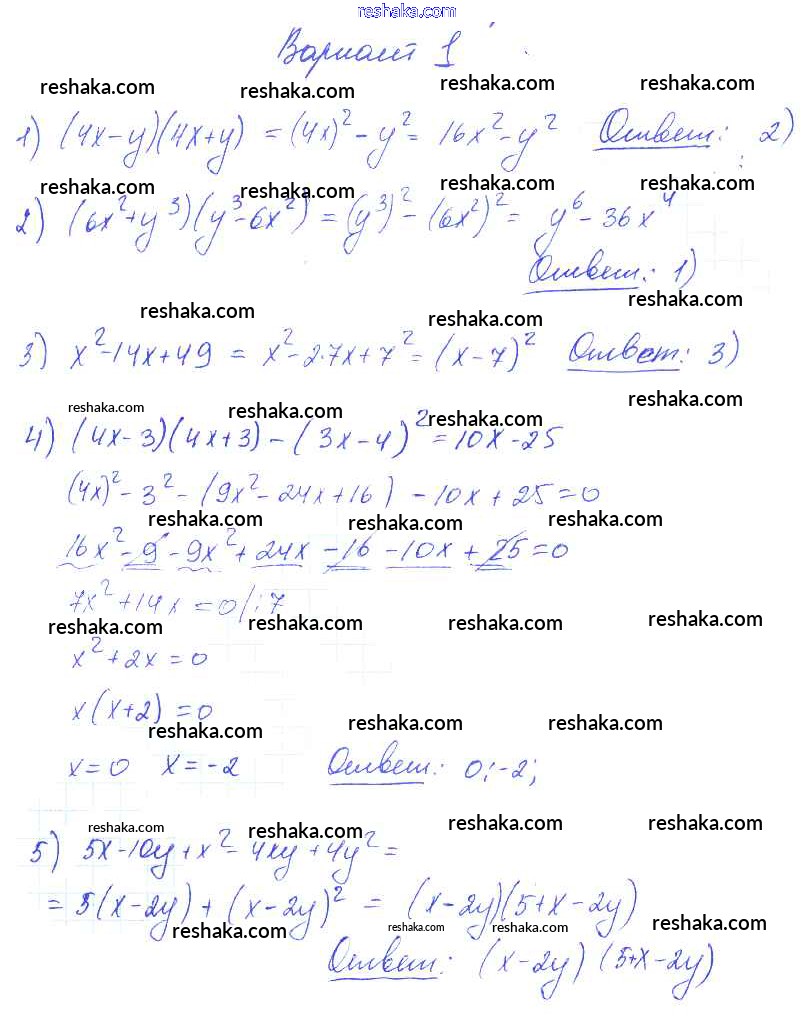 reshaka.com
Вариант 1
reshaka.com reshaka.com reshaka.com reshaka.com
1) (4x-y)(4x+y) = (4x)² - y² = 16x² - y² Ответ: 2)
reshaka.com reshaka.com reshaka.com reshaka.com
2) (6x²+y³)(y³-6x²) = (y³)² - (6x²)² = y⁶ - 36x⁴
Ответ: 1)
reshaka.com reshaka.com reshaka.com
3) x²-14x+49 = x²-2·7x+7² = (x-7)² Ответ: 3)
reshaka.com reshaka.com reshaka.com reshaka.com
4) (4x-3)(4x+3) - (3x-4)² = 10x-25
(4x)² - 3² - (9x²-24x+16) - 10x + 25 = 0
reshaka.com reshaka.com reshaka.com
16x² - 9 - 9x² + 24x - 16 - 10x + 25 = 0
7x² + 14x = 0 /:7
reshaka.com reshaka.com reshaka.com reshaka.com
x² + 2x = 0
x(x+2) = 0
reshaka.com reshaka.com reshaka.com
x = 0 x = -2 Ответ: 0; -2;
reshaka.com reshaka.com reshaka.com reshaka.com
5) 5x-10y+x²-4xy+4y² =
= 5(x-2y) + (x-2y)² = (x-2y)(5+x-2y)
reshaka.com reshaka.com reshaka.com reshaka.com
Ответ: (x-2y)(5+x-2y)